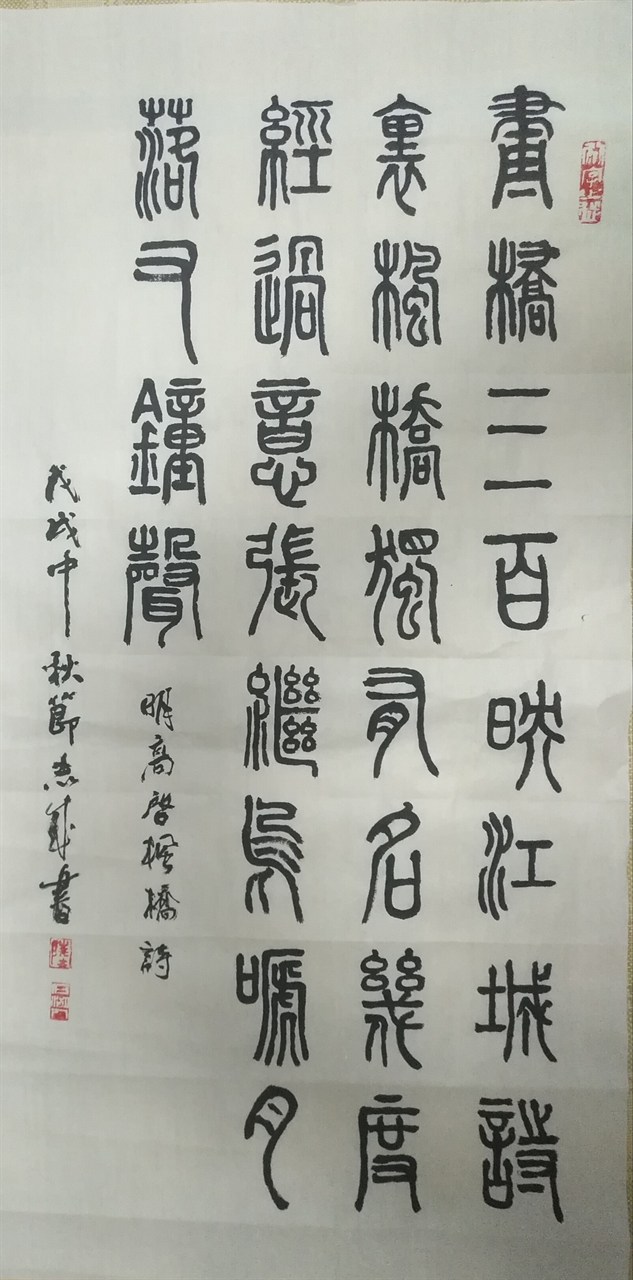 畫橋三百映江城詩
裏楓橋獨有名幾度
經過意張繼烏嗁月
落又鐘聲
明高啓楓橋詩
戊戌中秋節志成書